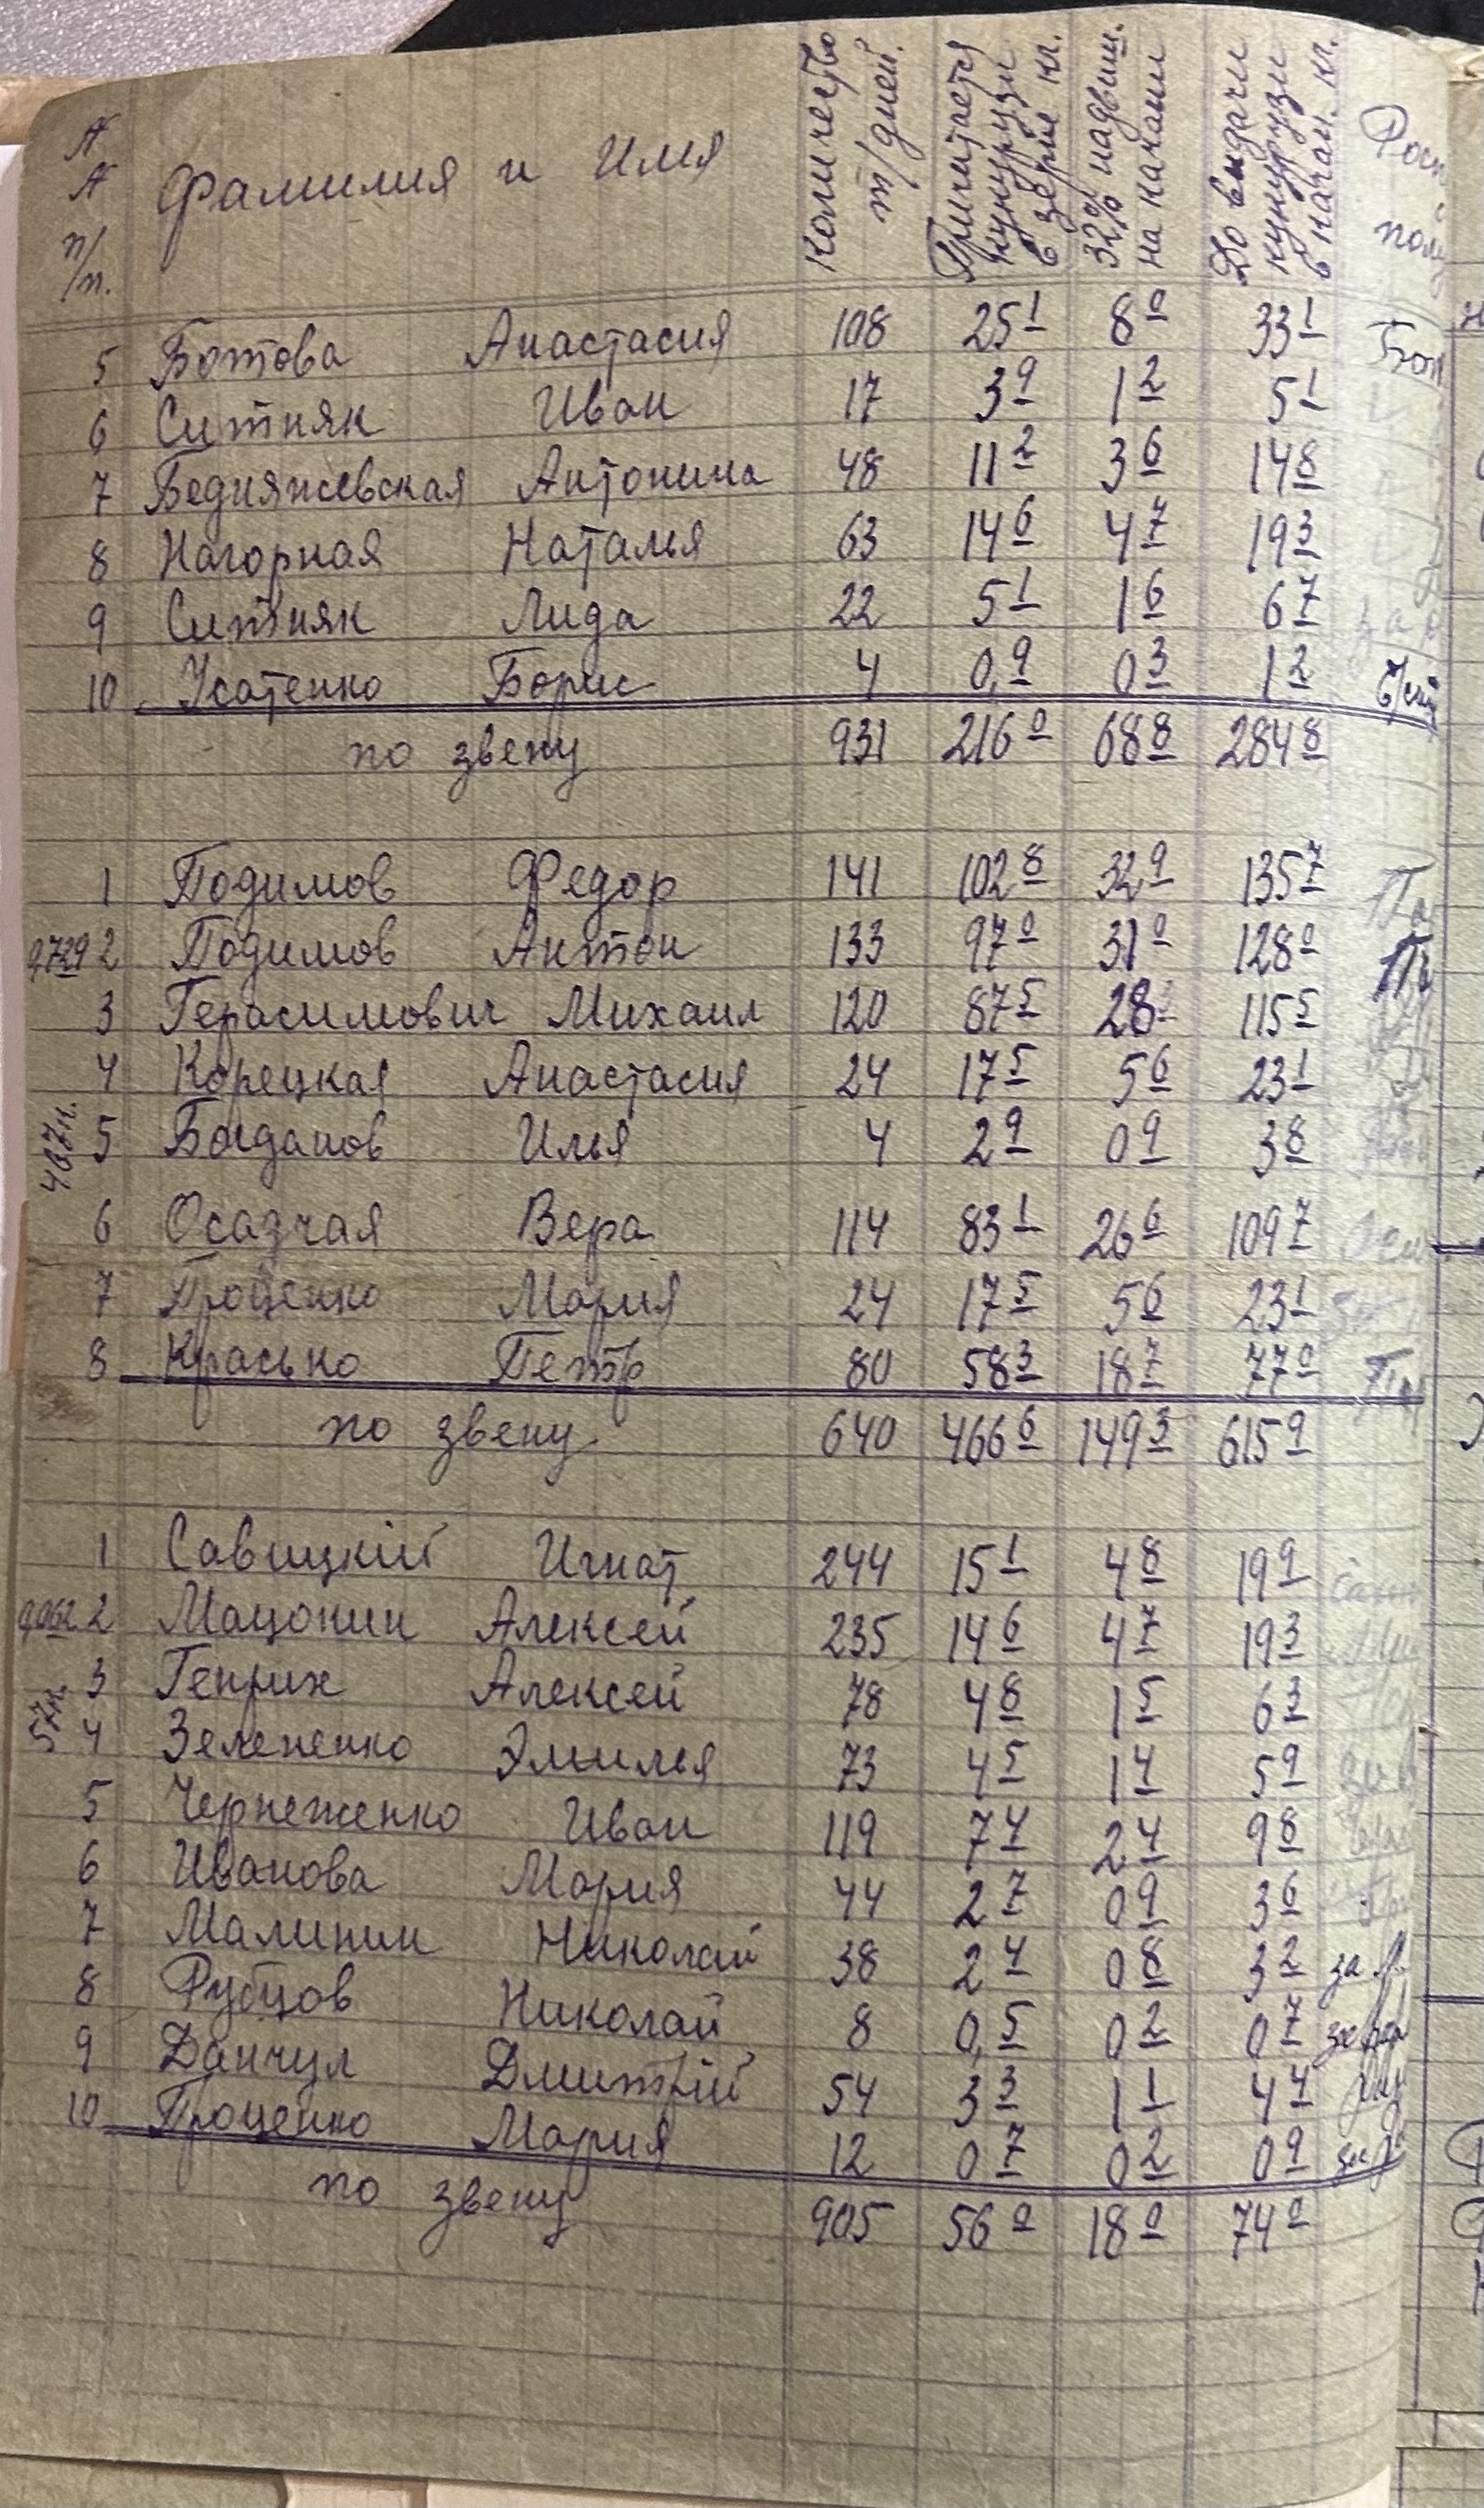 № № п/п. Фамилия и Имя Количество т/дней. Причитается кукурузы в зерне кг. 32% надбав. на качаны До выдачи кукурузы в качан. кг.
5 Ботова Анастасия 108 25 1 8 0 33 1
6 Ситняк Иван 17 3 9 1 2 5 1
7 Бедняжевская Антонина 48 11 2 3 6 14 8
8 Нагорная Наталья 63 14 6 4 7 19 3
9 Ситняк Лида 22 5 1 1 6 6 7
10 Усатенко Борис 4 0,9 0 3 1 2
по звену 931 216 0 68 8 284 8
1 Подимов Федор 141 102 8 32 9 135 7
0,729 2 Подимов Антон 133 97 0 31 0 128 0
3 Герасимович Михаил 120 87 5 28 115 5
4 Корецкая Анастасия 24 17 5 5 6 23 1
467к. 5 Богданов Илья 4 2 9 0 9 3 8
6 Осадчая Вера 114 83 1 26 6 109 7
7 Проценко Мария 24 17 5 5 6 23 1
8 Красько Петр 80 58 3 18 7 77 0
по звену 640 466 6 149 3 615 9
1 Савицкій Игнат 244 15 1 4 8 19 9
0,062 2 Мацокин Алексей 235 14 6 4 7 19 3
3 Генрих Алексей 78 4 8 1 5 6 3
57к. 4 Зелененко Эмилья 73 4 5 1 4 5 9
5 Чернеженко Иван 119 7 4 2 4 9 8
6 Иванова Мария 44 2 7 0 9 3 6
7 Малинин Николай 38 2 4 0 8 3 2
8 Рубцов Николай 8 0,5 0 2 0 7
9 Данчул Дмитрій 54 3 3 1 1 4 4
10 Проценко Мария 12 0 7 0 2 0 9
по звену 905 56 0 18 0 74 0